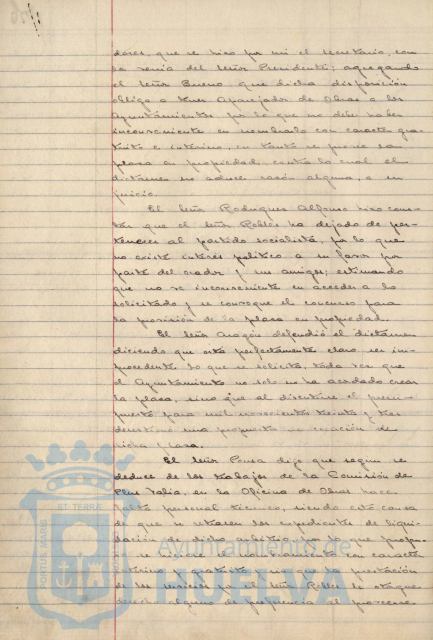 dores, que se hizo por mi el secretario, con
la venia del señor Presidente; agregando
el señor Bueno que dicha disposición
obliga a tener Aparejador de Obras a los
Ayuntamientos por lo que no debe haber
inconveniente en nombrarlo con caracter gra-
tuito e interino, en tanto se provee la
plaza en propiedad, contra lo cual el
dictamen no aduce razón alguna, a su
juicio.
El señor Rodriguez Alfonso hizo cons-
tar que el señor Robles ha dejado de per-
tenecer al partido socialista, por lo que
no existe interés politico a su favor por
parte del orador y sus amigos; estimando
que no se inconveniente en acceder a lo
solicitado y se convoque el concurso para
la provisión de la plaza en propiedad.
El señor Aragón defendió el dictamen
diciendo que está perfectamente claro, ser im-
procedente lo que se solicita, toda vez que
el Ayuntamiento no solo no ha acordado crear
la plaza, sino que al discutirse el presu-
puesto para mil novecientos treinta y tres
desestimó una propuesta de creación de
dicha plaza.
El señor Ponsa dijo que segun se
deduce de los trabajos de la Comisión de
Plus Valia, en la Oficina de Obras hace
falta personal tecnico, siendo esta causa
de que se retrasen los expedientes de liqui-
dación de dicho arbitrio, por lo que propo-
ne se el nombramiento con caracter
interino y gratuito y que la prestación
de los servicios por el señor Robles le otorgue
derecho alguno de preferencia al proveerse
PORTUS MARIS
ET TERRÆ
Ayuntamiento de
HUELVA